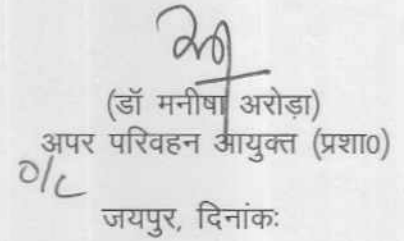 (डॉ मनीषा अरोड़ा)
अपर परिवहन आयुक्त (प्रशा0)
O/C
जयपुर, दिनांकः